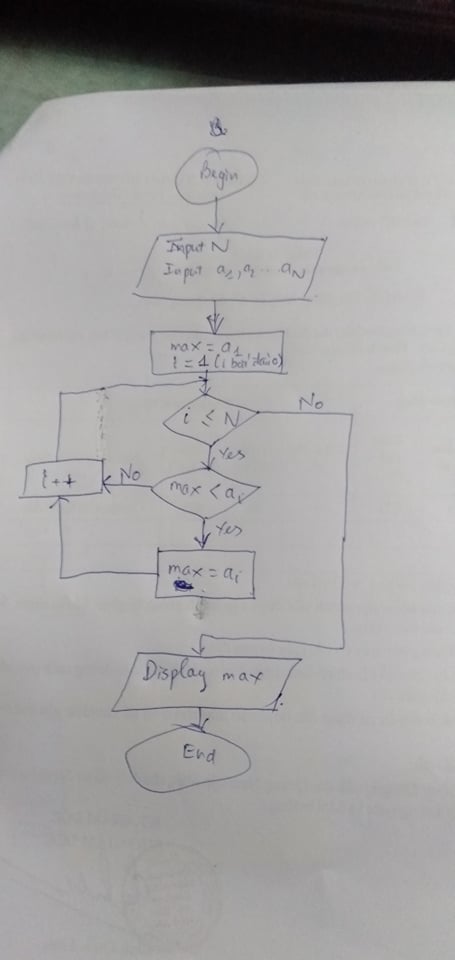 Begin
Input N
Input a1, a2 ... aN
max = a1
i = 1 (i
i ≤ N
No
Yes
max < ai
No
i++
Yes
max = ai
Display max
End